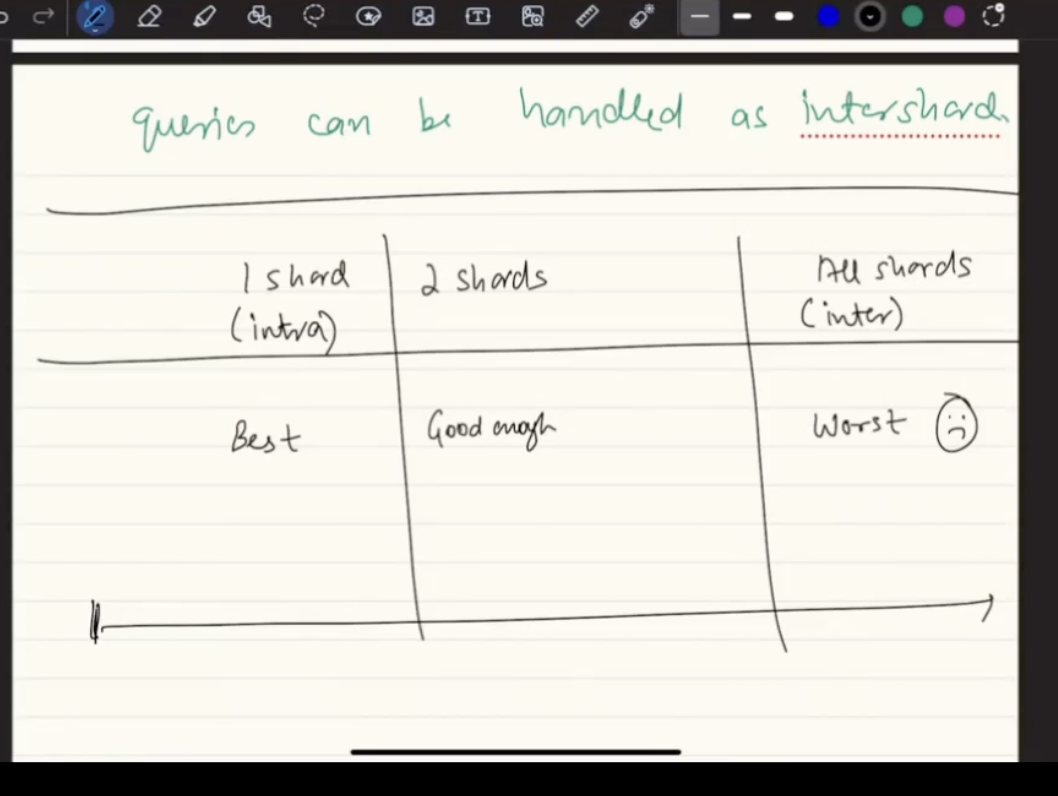 queries can be handled as intershard.
1 shard
(intra)
2 shards
All shards
(inter)
Best
Good enough
Worst